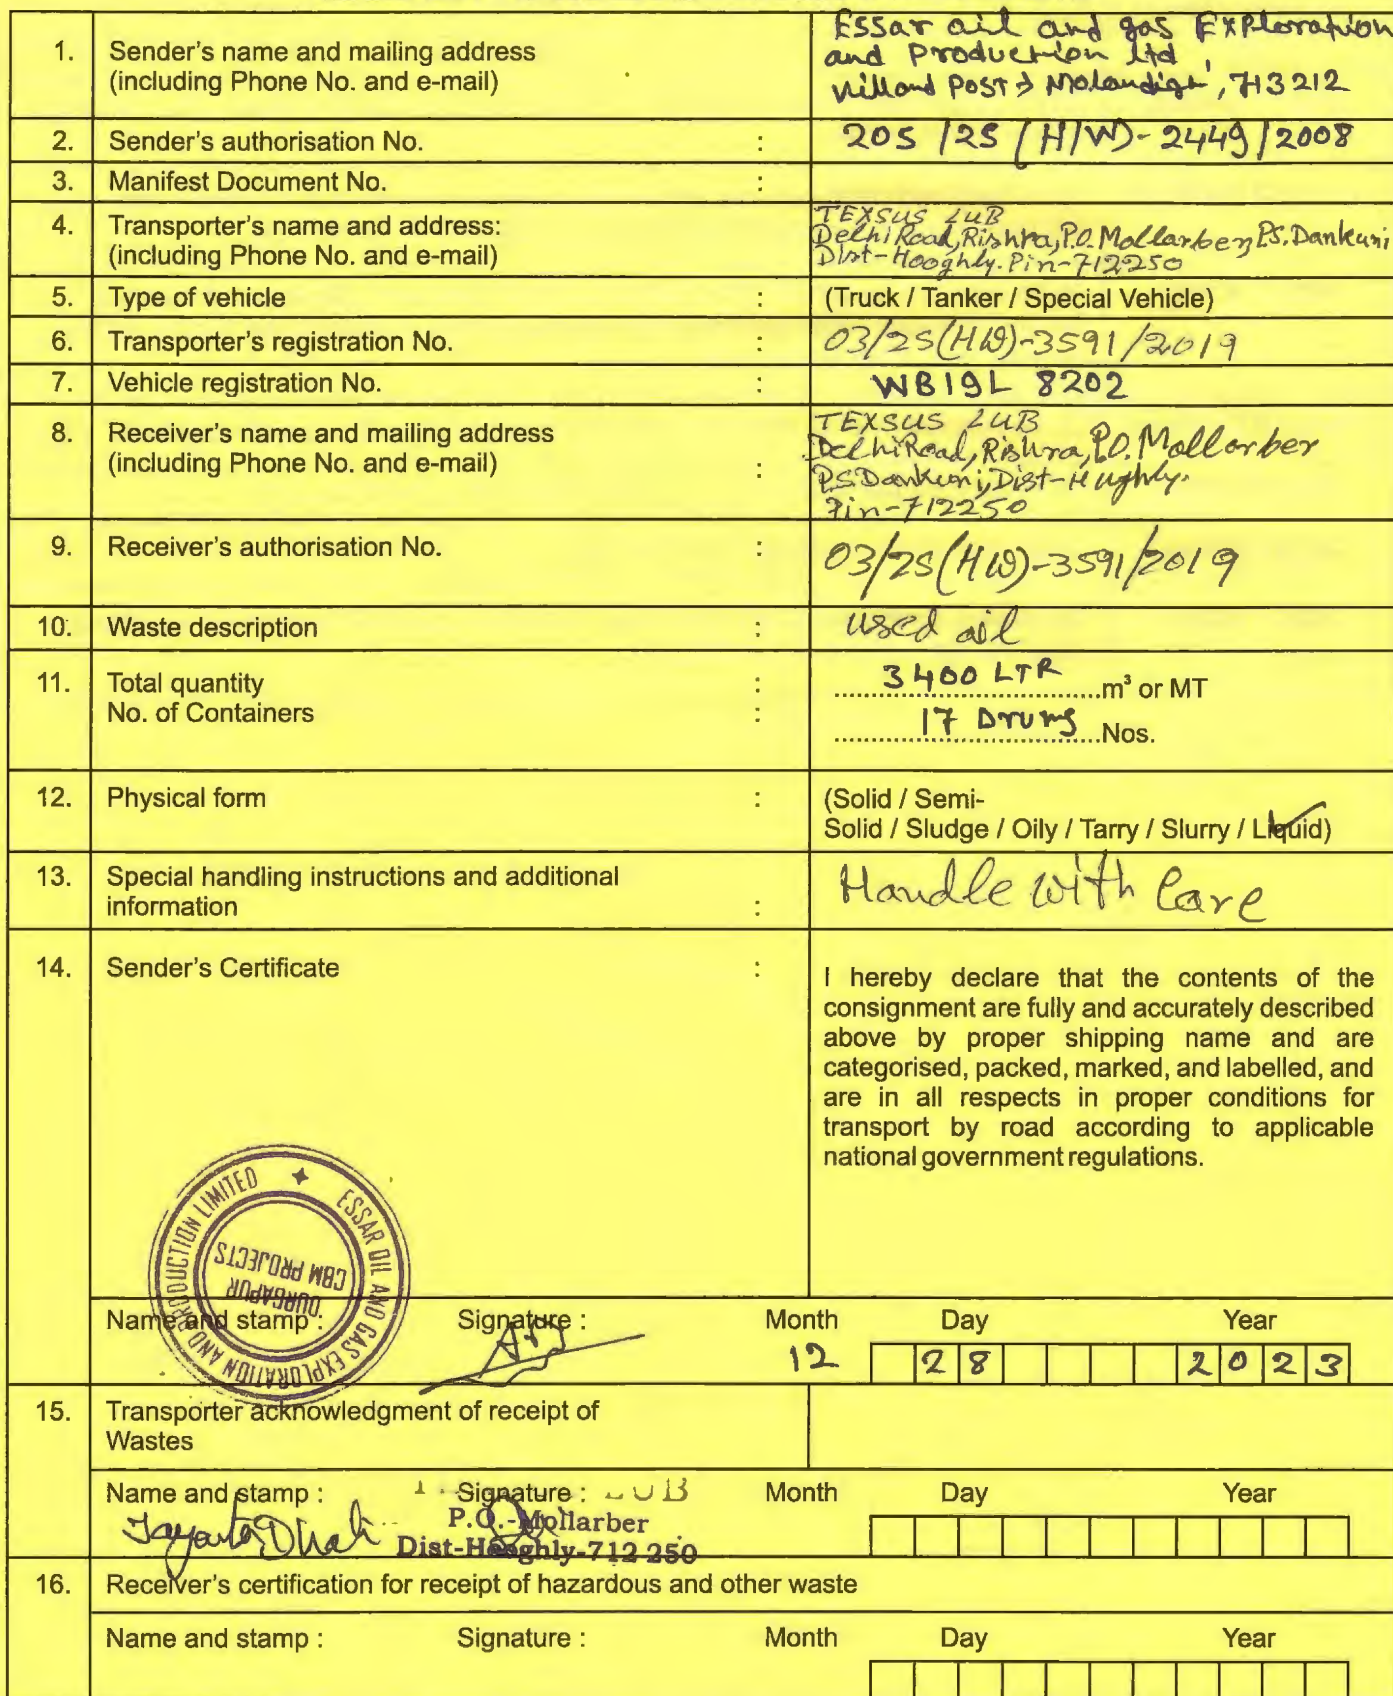 1. Sender's name and mailing address
(including Phone No. and e-mail)
Essar oil and gas Exploration
and Production Ltd
Vill and Post → Molandighi, 713212
2. Sender's authorisation No. : 20S/2S(H/W)-2449/2008
3. Manifest Document No. :
4. Transporter's name and address: 
(including Phone No. and e-mail)
TEXSUS LUB
Delhi Road, Rishra, P.O. Mollarber, P.S. Dankuni
Dist-Hooghly. Pin-712250
5. Type of vehicle : (Truck / Tanker / Special Vehicle)
6. Transporter's registration No. : 03/2S(HW)-3591/2019
7. Vehicle registration No. : WB19L 8202
8. Receiver's name and mailing address
(including Phone No. and e-mail) :
TEXSUS LUB
Delhi Road, Rishra, P.O. Mollarber
P.S Dankuni, Dist-Hughly.
Pin-712250
9. Receiver's authorisation No. : 03/2S(HW)-3591/2019
10. Waste description : used oil
11. Total quantity : 3400 LTR m³ or MT
No. of Containers : 17 Drums Nos.
12. Physical form : (Solid / Semi-
Solid / Sludge / Oily / Tarry / Slurry / Liquid)
13. Special handling instructions and additional
information : Handle with Care
14. Sender's Certificate :
I hereby declare that the contents of the
consignment are fully and accurately described
above by proper shipping name and are
categorised, packed, marked, and labelled, and
are in all respects in proper conditions for
transport by road according to applicable
national government regulations.
ESSAR OIL AND GAS EXPLORATION AND PRODUCTION LIMITED
DURGAPUR
CBM PROJECTS
Name and stamp : Signature : Month Day Year
12 28 2023
15. Transporter acknowledgment of receipt of
Wastes
Name and stamp : Signature : LUB Month Day Year
P.O.-Mollarber
Dist-Hooghly-712 250
16. Receiver's certification for receipt of hazardous and other waste
Name and stamp : Signature : Month Day Year